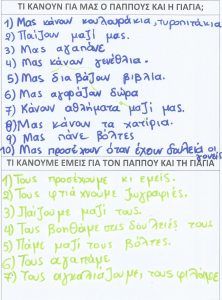 ΤΙ ΚΑΝΟΥΝ ΓΙΑ ΜΑΣ Ο ΠΑΠΠΟΥΣ ΚΑΙ Η ΓΙΑΓΙΑ;
1) Μας κάνουν κουλουράκια, τυροπιτάκια
2) Παίζουν μαζί μας.
3) Μας αγαπάνε
4) Μας κάνουν γενέθλια.
5) Μας διαβάζουν βιβλία.
6) Μας αγοράζουν δώρα
7) Κάνουν αθλήματα μαζί μας.
8) Μας κάνουν τα χατίρια.
9) Μας πάνε βόλτες
10) Μας προσέχουν όταν έχουν δουλειά οι γονείς
ΤΙ ΚΑΝΟΥΜΕ ΕΜΕΙΣ ΓΙΑ ΤΟΝ ΠΑΠΠΟΥ ΚΑΙ ΤΗ ΓΙΑΓΙΑ
1) Τους προσέχουμε κι εμείς.
2) Τους φτιάχνουμε ζωγραφιές.
3) Παίζουμε μαζί τους.
4) Τους βοηθάμε στις δουλειές τους
5) Πάμε μαζί τους βόλτες.
6) Τους αγαπάμε
7) Τους αγκαλιάζουμε, τους φιλάμε